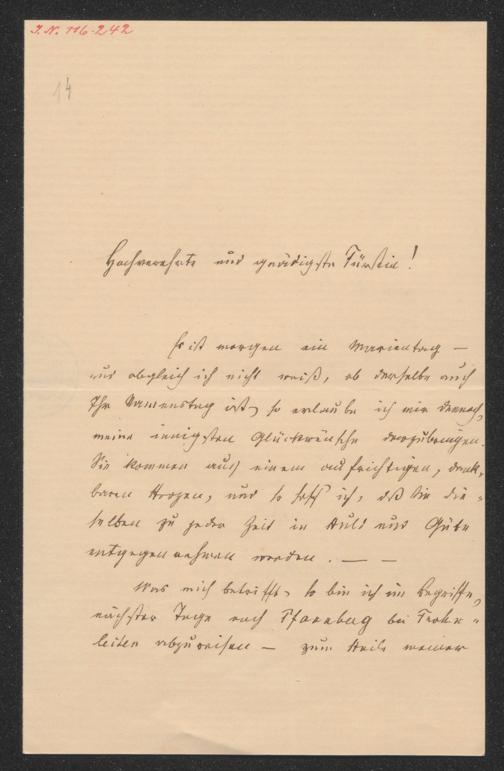 I. N. 116.242
14
Hochverehrte und gnädigste Fürstin!
Es ist morgen ein Marientag —
und obgleich ich nicht weiß, ob derselbe auch
Ihr Namenstag ist, so erlaube ich mir dennoch,
meine innigsten Glückwünsche darzubringen.
Sie kommen aus einem aufrichtigen, dank-
baren Herzen, und so hoff ich, daß Sie die-
selben zu jeder Zeit in Huld und Güte
entgegen nehmen werden. — —
Was mich betrifft, so bin ich im Begriffe,
nächster Tage nach Pfannberg bei Frohn-
leiten abzureisen — zum Theile meiner